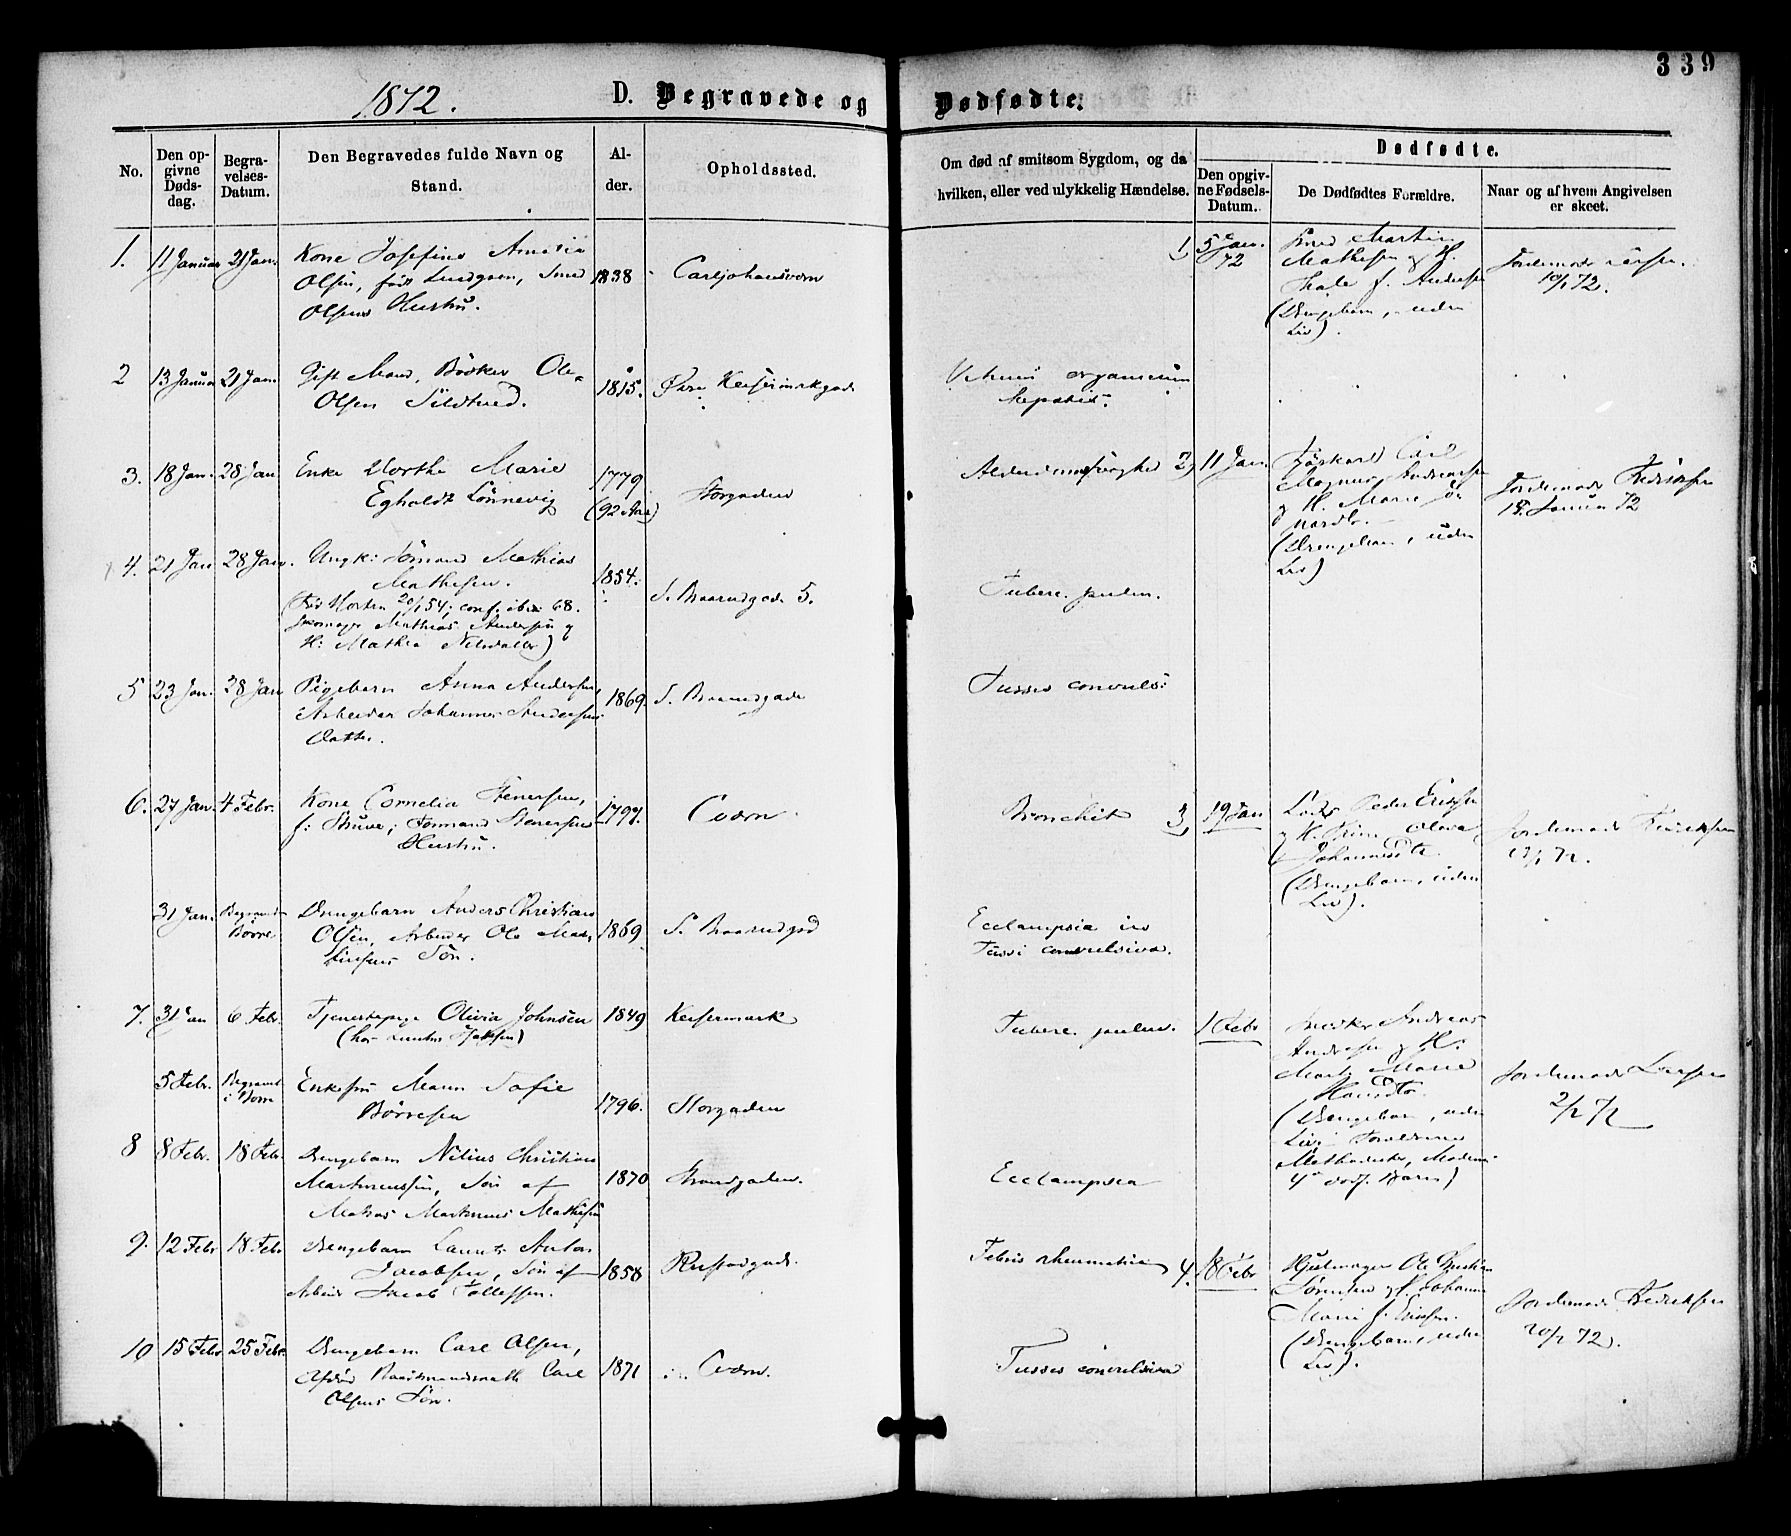 339
1872.
D. Begravede og Dødfødte.
No.
Den opgivne Dødsdag.
Begravelses-Datum.
Den Begravedes fulde Navn og Stand.
Alder.
Opholdssted.
Om død af smitsom Sygdom, og da hvilken, eller ved ulykkelig Hændelse.
Dødfødte.
Den opgivne Fødsels-Datum.
De Dødfødtes Forældre.
Naar og af hvem Angivelsen er skeet.
1. 11 Januar 21 Jan. Kone Josefine Amalia
Olsen, født Lundgren, Smed
Olsens Hustru.
1838 Carljohansværn
1, 5 Jan. 72
Mathesen & H.
f. Andersen
(Drengebarn, uden
Liv).
Jordemoder Larsen.
10/1 72.
2 13 Januar 21 Jan. Gift Mand, Bödker Ole
Olsen
1815. Øvre Keisermarkgade
organicum
hepatis.
3. 18 Jan. 28 Jan Enke Dorthe Marie
Egholdt Lönnevig
1779 (92 Aar) Storgaden
Alderdomssvaghed
2, 11 Jan. Carl
Magnus Andersen
& H. Marie
(Drengebarn, uden
Liv)
Jordemoder Fredriksen
18. Januar 72
4. 21 Jan 28 Jan. Ungk: Sömand Mathias
Mathesen.
(Föd Horten 20/1 54; conf. ibid. 68.
Skomager Mathias Andersen &
H: Mathea )
1854. S. Braarudgade 5.
Luberc. pulm.
5 23 Jan. 28 Jan Pigebarn Anna Andersen,
Arbeider Johannes Andersens
Datter.
1869. S. Braarudgade
Tussis convuls:
6. 27 Jan. 4 Febr. Kone Cornelia Stenersen,
f: Struve; Sömand Stenersens
Hustru.
1797. Oværn
Bronchit
3, 19 Jan Lods Peder Eriksen
& H. Trine Olava
Johannesdtr.
(Drengebarn, uden
Liv).
Jordemoder Fredriksen
31 Jan. Begravet Börre Drengebarn Anders Christian
Olsen, Arbeider Ole
Sön.
1869. S. Braarudgad
Ecclampsia in
Tussi convulsiva.
7. 31 Jan 6 Febr. Tjenestepige Olivia Johnsen
1849 Keisermark
Tuberc. pulm.
1 Febr Andreas
Andersen & H:
Marie
Hansdtr.
(Drengebarn, uden
Liv. Forældrene
Methodister, Moderens
4de dødf. Barn)
Jordemoder Larsen
2/2 72
5 Febr. Begravet i Borre Enkefru Maren Sofie
Börresen
1796. Storgaden
8 8 Febr. 18 Febr. Drengebarn Nilius Christian
Martinussen, Sön af
Matros Martinus Mathesen
1870 Strandgaden.
Ecclampsia
9. 12 Febr 18 Febr Drengebarn Laurits Anton
Jacobsen, Sön af
Arbeider Jacob Tollefsen.
1858 Rustadgade.
Febris rheumatica
4. 18 Febr Hjulmager Ole
Sörensen & H. Johanne
Marie f. Eriksen.
(Drengebarn, uden
Liv).
Jordemoder Fredriksen
20/2 72.
10 15 Febr 25 Febr. Drengebarn Carl Olsen,
afdöd Carl
Olsens Sön.
1871 Oværn.
Tussis convulsiva